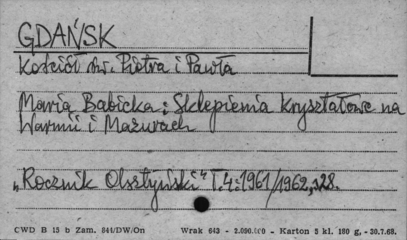 GDAŃSK
Kościół św. Piotra i Pawła
Maria Babicka: Sklepienia kryształowe na
Warmii i Mazurach
„Rocznik Olsztyński" T.4:1961/1962, s28.
CWD B 15 b Zam. 844/DW/On Wrak 643 - 2.090.000 - Karton 5 kl. 180 g, - 30.7.68.